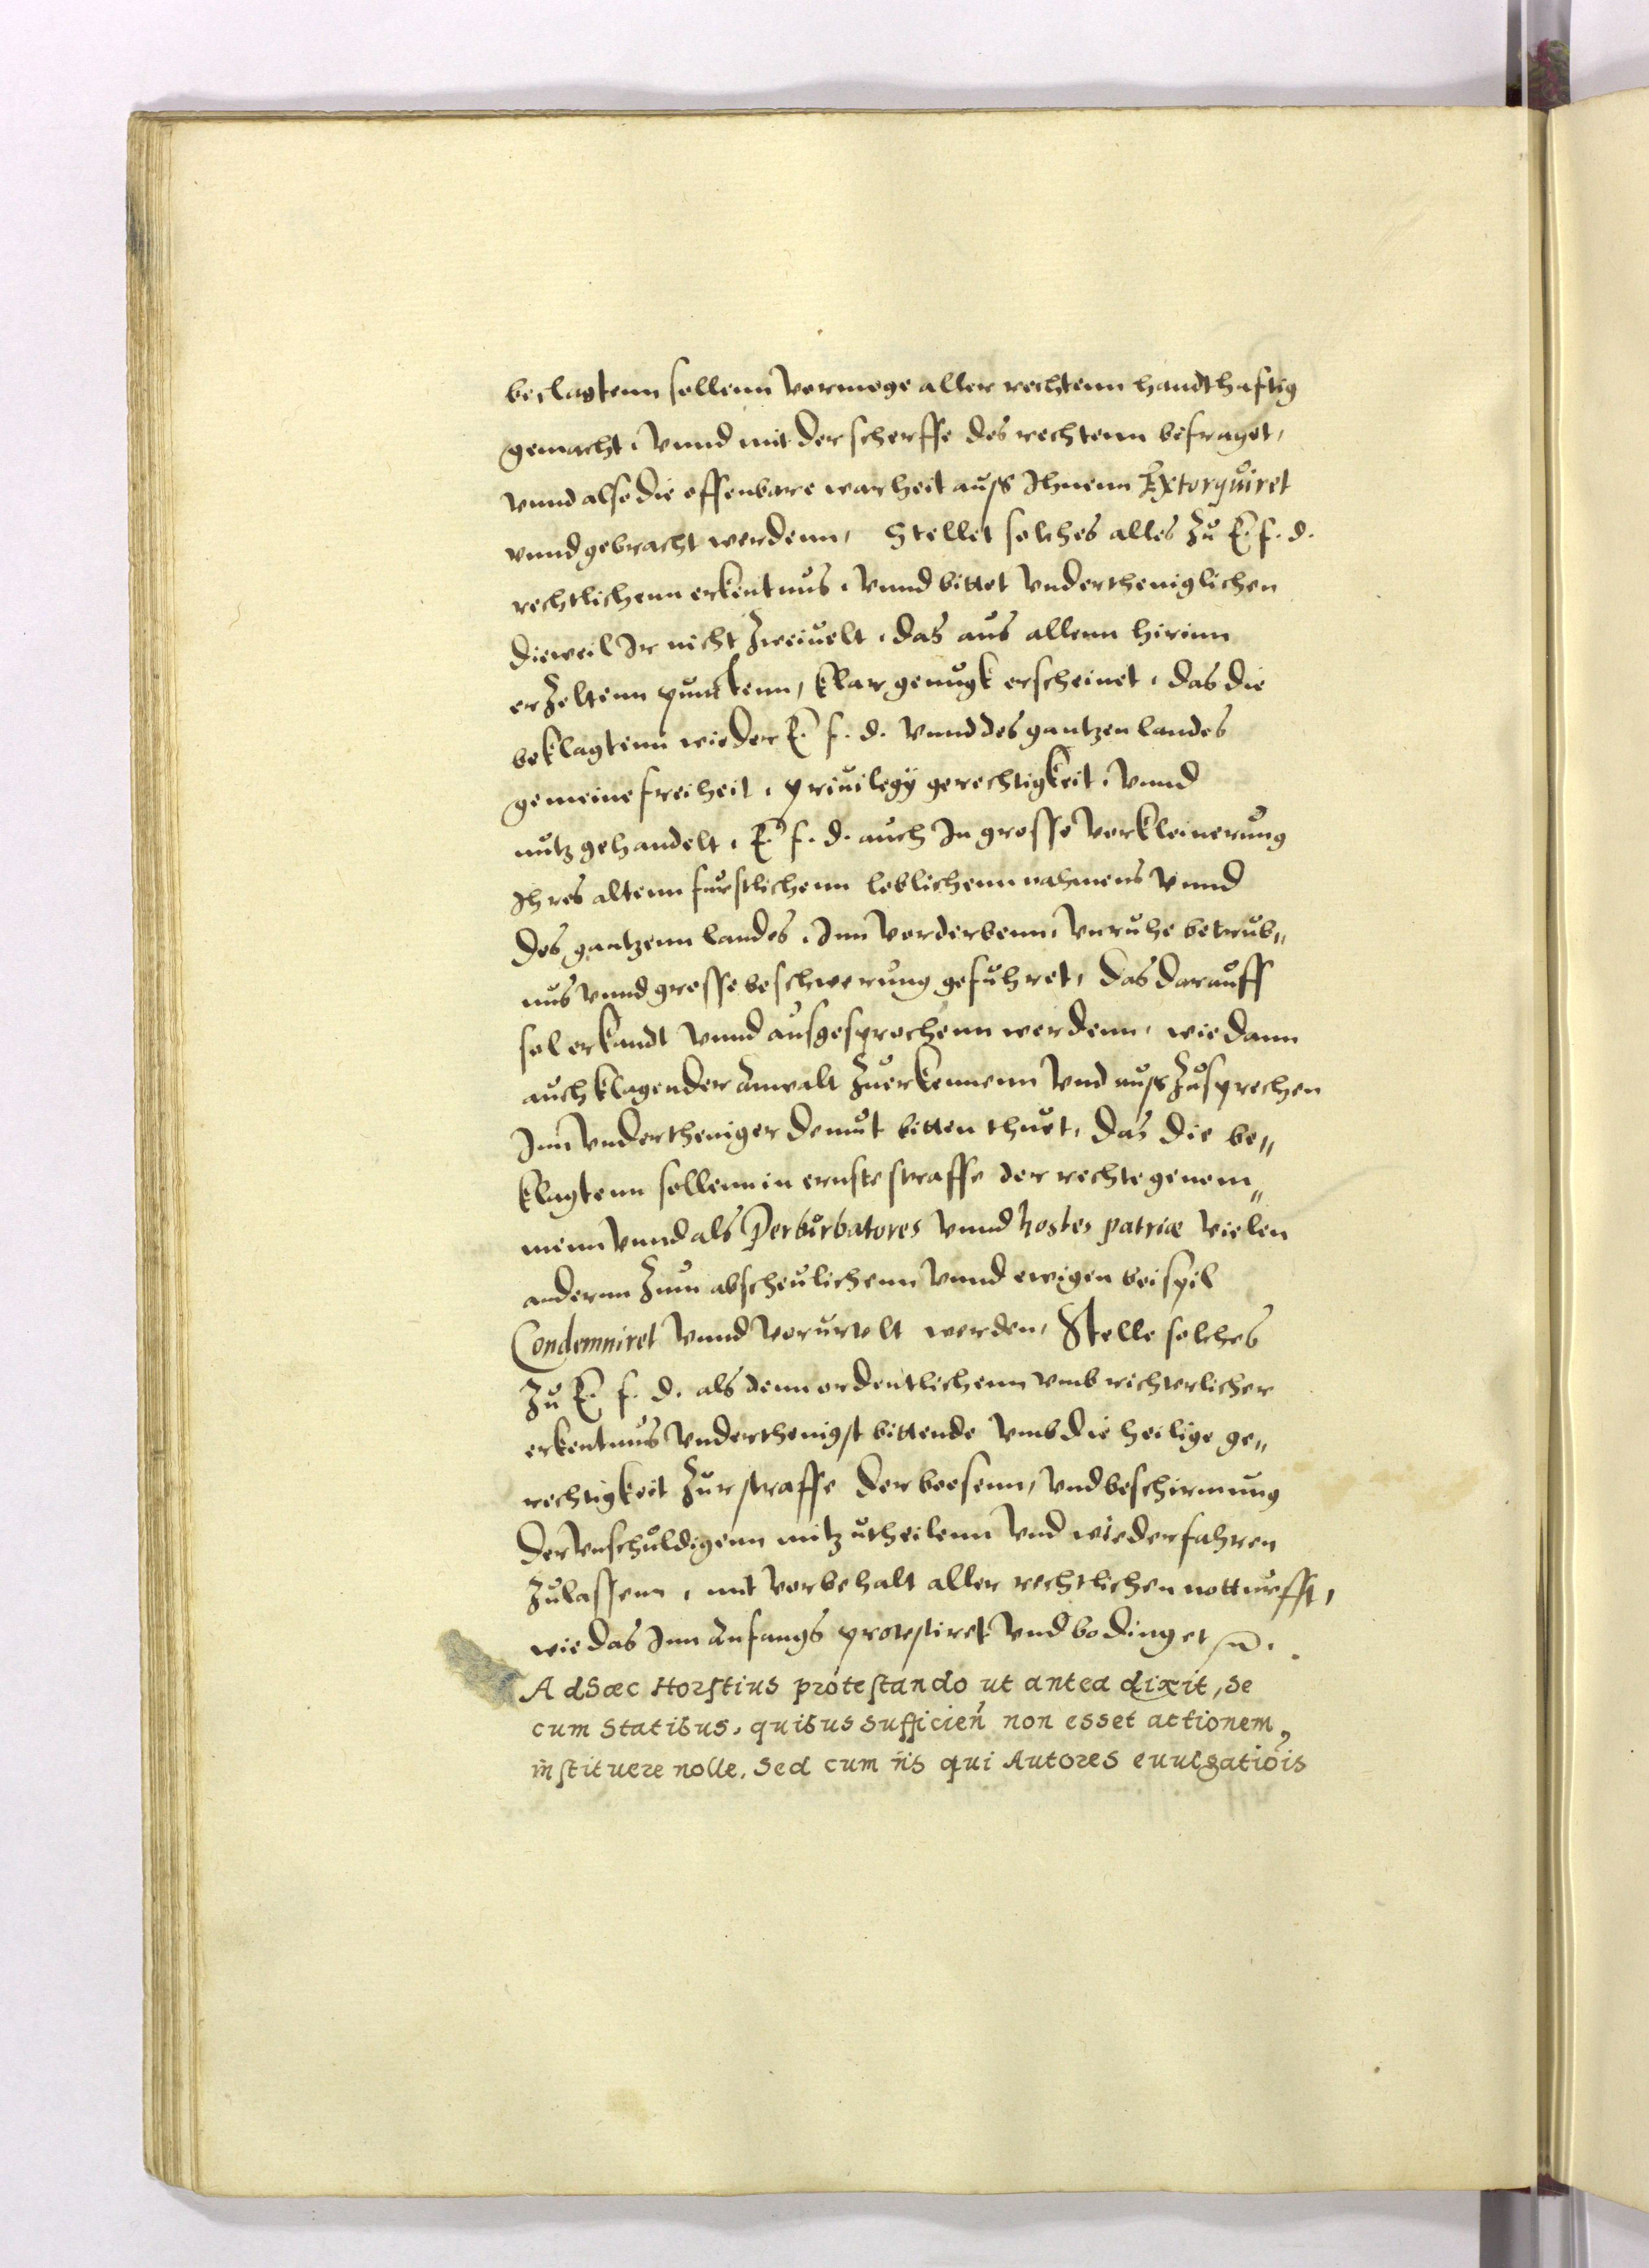 beclagtenn sollenn vormoge aller rechtenn handthafftig
gemacht, vnnd mit der scherffe des rechtenn befraget,
vnnd also die offenbare warheit auss Ihnenn Extorquiret
vnnd gebracht werdenn, Stellet solches alles zu E. f. d.
rechtlichenn erkentnus, vnnd bittet vndertheniglichen
dieweil Ir nicht zweiuelt, das aus allenn hirinn
erzeltenn punctenn, klar genugk erscheinet, das die
beklagtenn wieder E. f. d. vnnd des gantzen landes
gemeine freiheit, priuilegij gerechtigkeit, vnnd
nutz gehandelt, E. f. d. auch In grosse vorkleinerung
Ihres altenn furstlichenn loblichenn nahmens vnnd
des gantzenn landes, Inn vorderbenn, vnruhe betrub„
nus vnnd grosse beschwerung gefuhret, das darauff
sol erkandt vnnd ausgesprochenn werdenn, wie dann
auch klagender Anwalt zuerkennenn vnd auss zusprechen
Inn vndertheniger demut bitten thuet, das die be„
klagtenn sollenn in ernste straffe der rechte genom„
menn vnnd als Perturbatores vnnd hostes patriæ vielen
andernn zum abscheulichenn vnnd ewigen beispil
Condemniret vnnd vorurtelt werden, Stelle solches
zu E. f. d. als denn ordentlichenn vmb richterlicher
erkentnus vnderthenigst bittende vmb die heilige ge„
rechtigkeit zur straffe der boesenn, vnd beschirmung
der vnschuldigenn mitzutheilenn vnd wiederfahren
zulassenn, mit vorbehalt aller rechtlichen notturfft,
wie das Inn Anfangs protestiret vnd bedinget
Ad hæc Horstius protestando ut antea dixit, se
cum statibus, quibus sufficien̄ non esset actionem,
instituere nolle, sed cum iis qui Autores euulgatio͞is